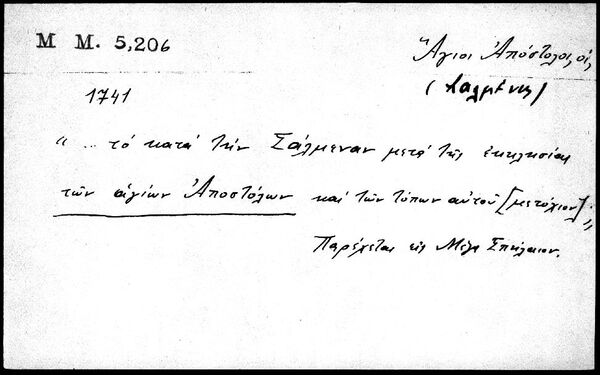 M M. 5,206
Ἅγιοι Ἀπόστολοι, οἱ,
(Σαλμένικ)
1741
"... τό κατά τήν Σάλμεναν μετά τῆς ἐκκλησίας
τῶν ἁγίων Ἀποστόλων καί τῶν τόπων αὐτοῦ [μετόχιον];,
Παρέχεται εἰς Μέγα Σπήλαιον.